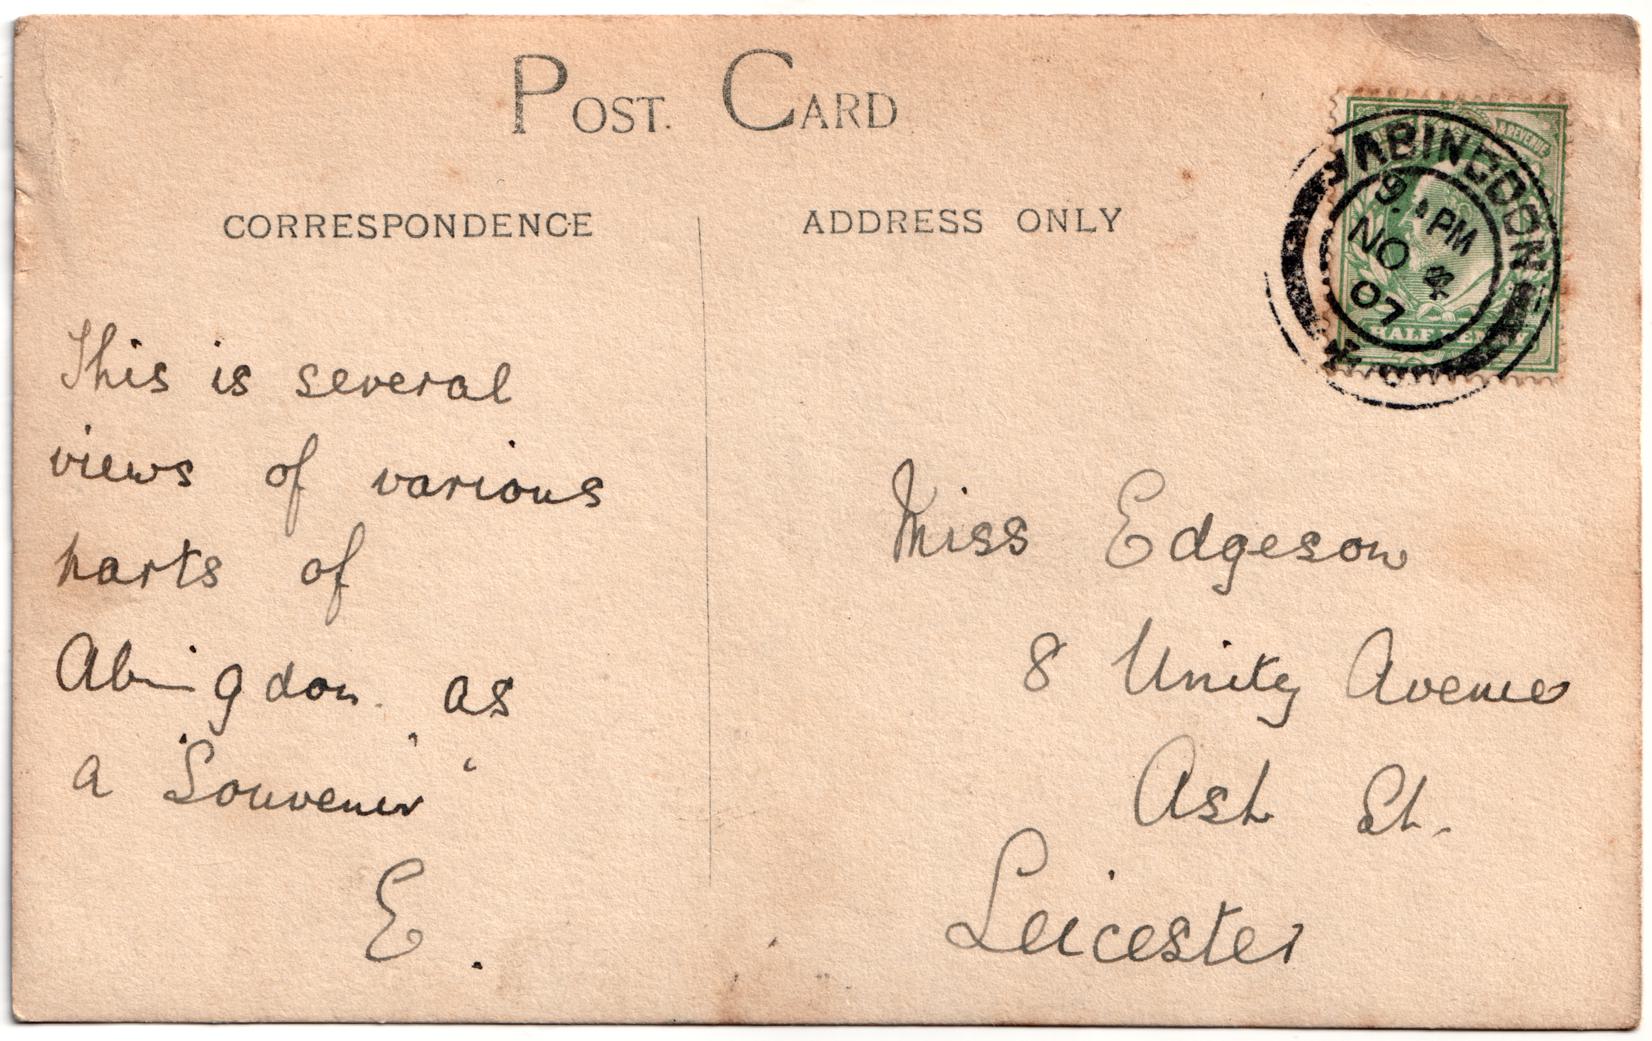 POST CARD
CORRESPONDENCE
ADDRESS ONLY
& REVENUE
HALF PENNY
ABINGDON
9. PM
NO 4
07
This is several
views of various
parts of
Abingdon. as
a "Souvenir"
E.
Miss Edgeson
8 Unity Avenue
Ash St.
Leicester